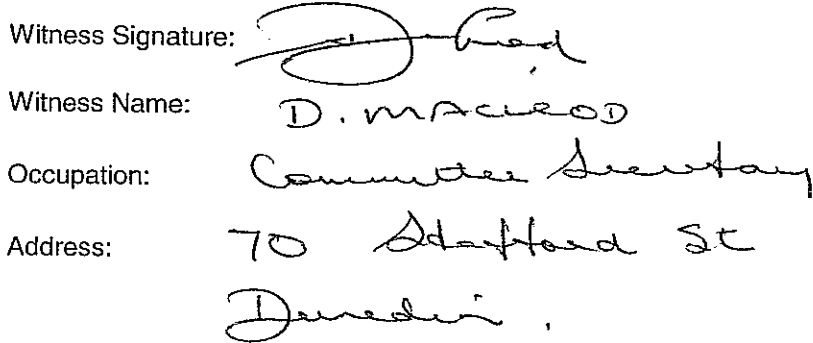 Witness Signature:
Witness Name: D. MACLEOD
Occupation: Committee Secretary
Address: 70 Stafford St
Dunedin.